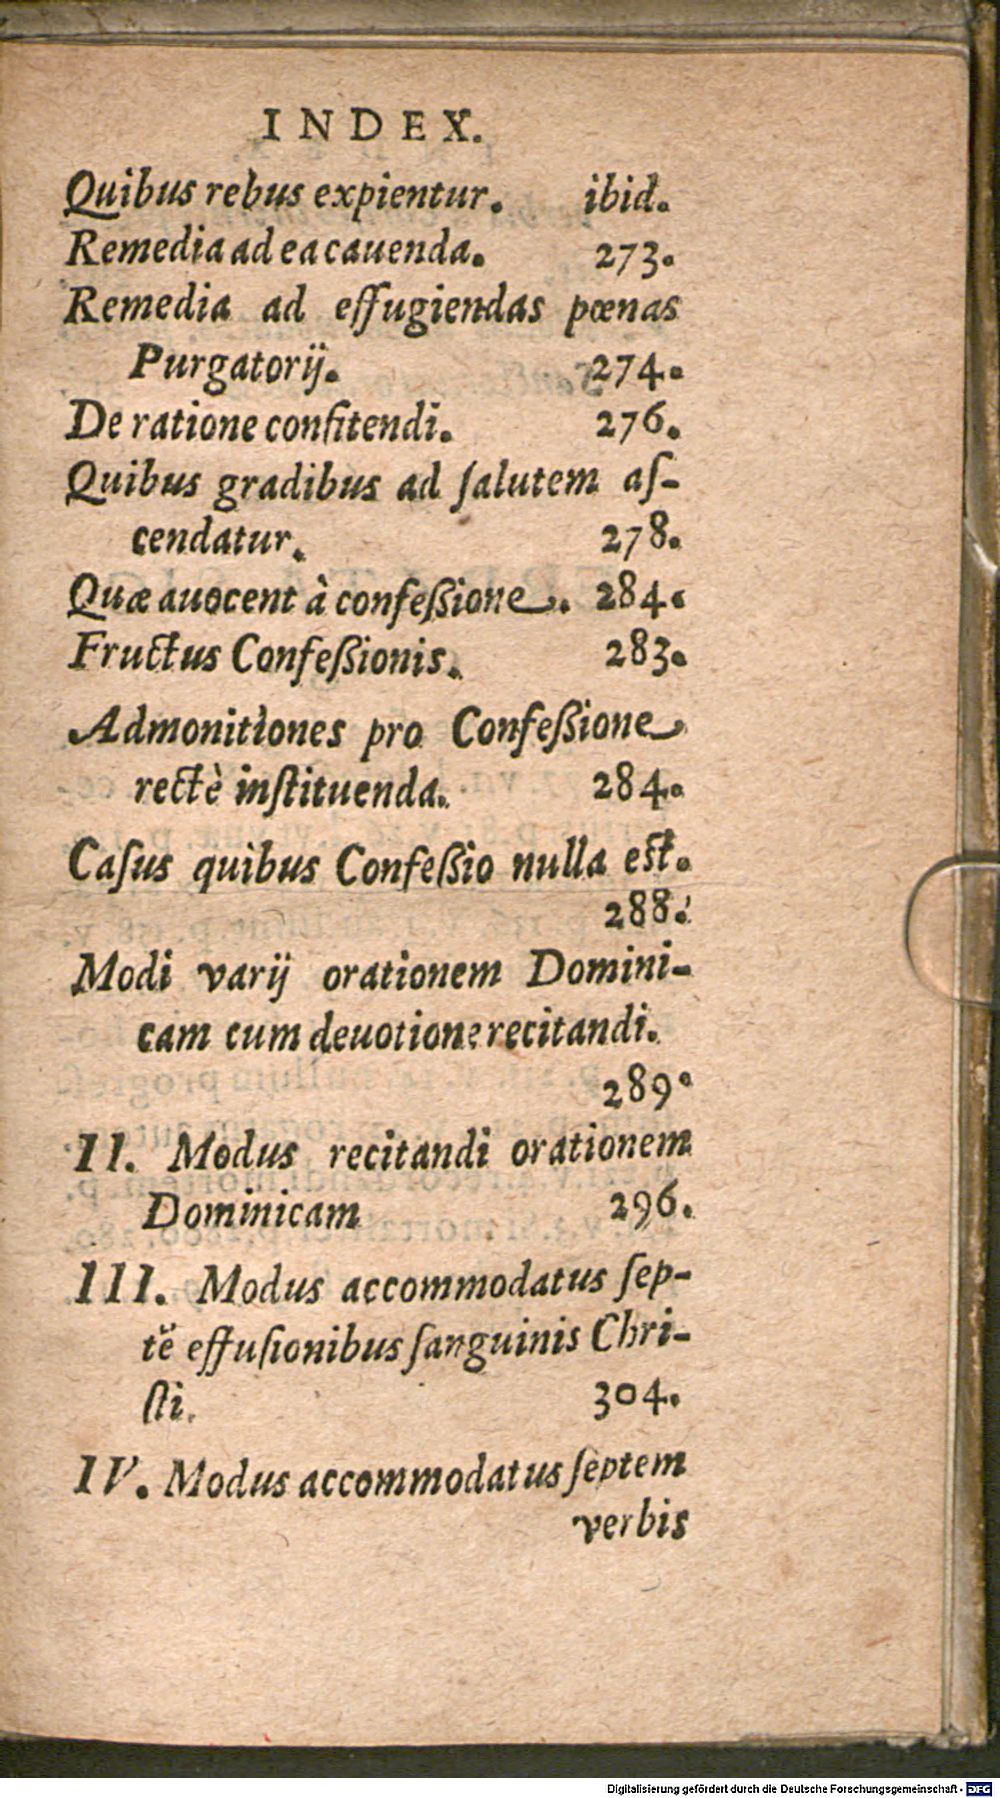 INDEX.
Quibus rebus expientur. ibid.
Remedia ad ea cauenda. 273.
Remedia ad effugiendas pœnas
Purgatorij. 274.
De ratione confitendi. 276.
Quibus gradibus ad ſalutem aſ-
cendatur. 278.
Quæ auocent à confeßione. 284.
Fructus Confeßionis. 283.
Admonitiones pro Confeßione
rectè inſtituenda. 284.
Caſus quibus Confeßio nulla eſt.
288.
Modi varij orationem Domini-
cam cum deuotione recitandi.
289.
II. Modus recitandi orationem
Dominicam 296.
III. Modus accommodatus ſep-
tē effuſionibus ſanguinis Chri-
ſti. 304.
IV. Modus accommodatus ſeptem
verbis
Digitalisierung gefördert durch die Deutsche Forschungsgemeinschaft - DFG